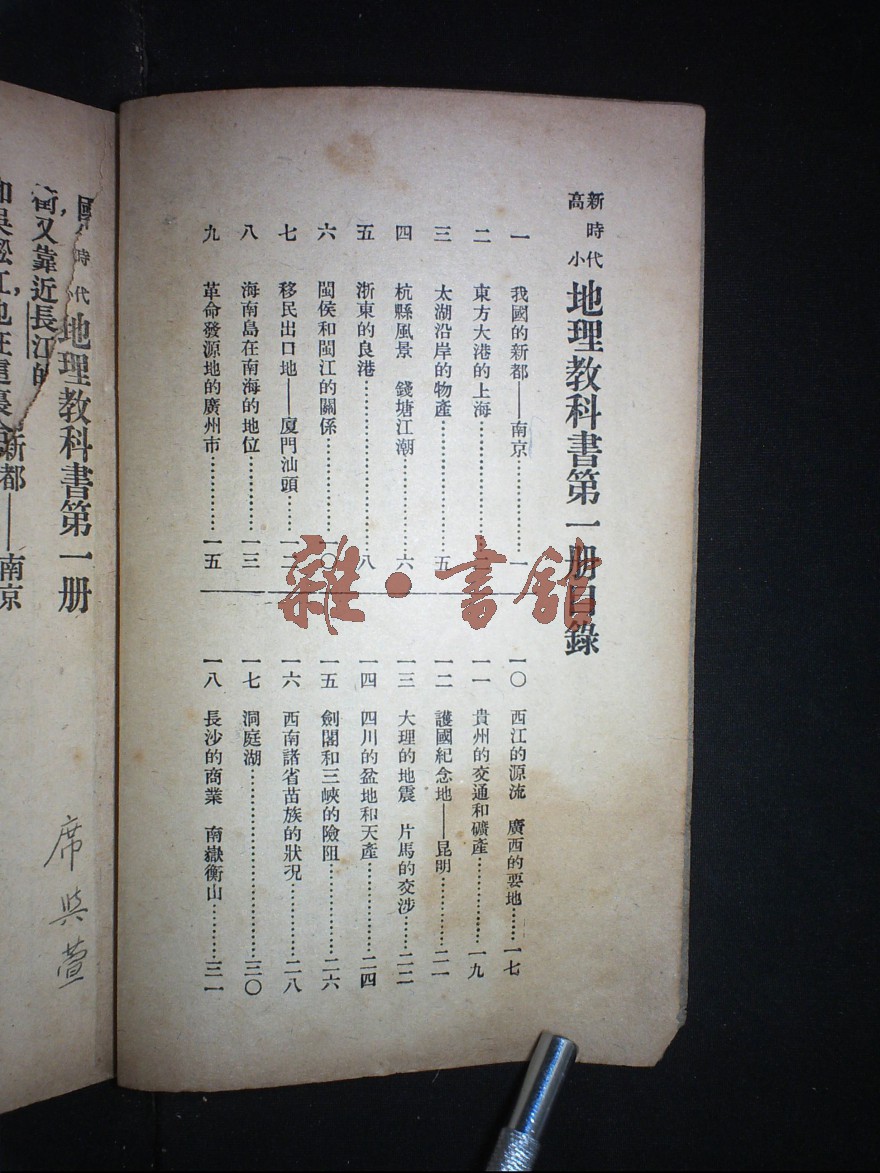 新時代
高小
地理教科書第一册目錄
一 我國的新都——南京…………一
二 東方大港的上海…………
三 太湖沿岸的物產…………五
四 杭縣風景 錢塘江潮…………六
五 浙東的良港…………八
六 閩侯和閩江的關係…………一〇
七 移民出口地——廈門汕頭…………一
八 海南島在南海的地位…………一三
九 革命發源地的廣州市…………一五
一〇 西江的源流 廣西的要地……一七
一一 貴州的交通和礦產…………一九
一二 護國紀念地——昆明…………二一
一三 大理的地震 片馬的交涉……二二
一四 四川的盆地和天產…………二四
一五 劍閣和三峽的險阻…………二六
一六 西南諸省苗族的狀況…………二八
一七 洞庭湖…………三〇
一八 長沙的商業 南嶽衡山…………三一
雜·書館
時代
地理教科書第一册
新都——南京
衝,又靠近長江的
如吳淞江,也在這裏
席與萱